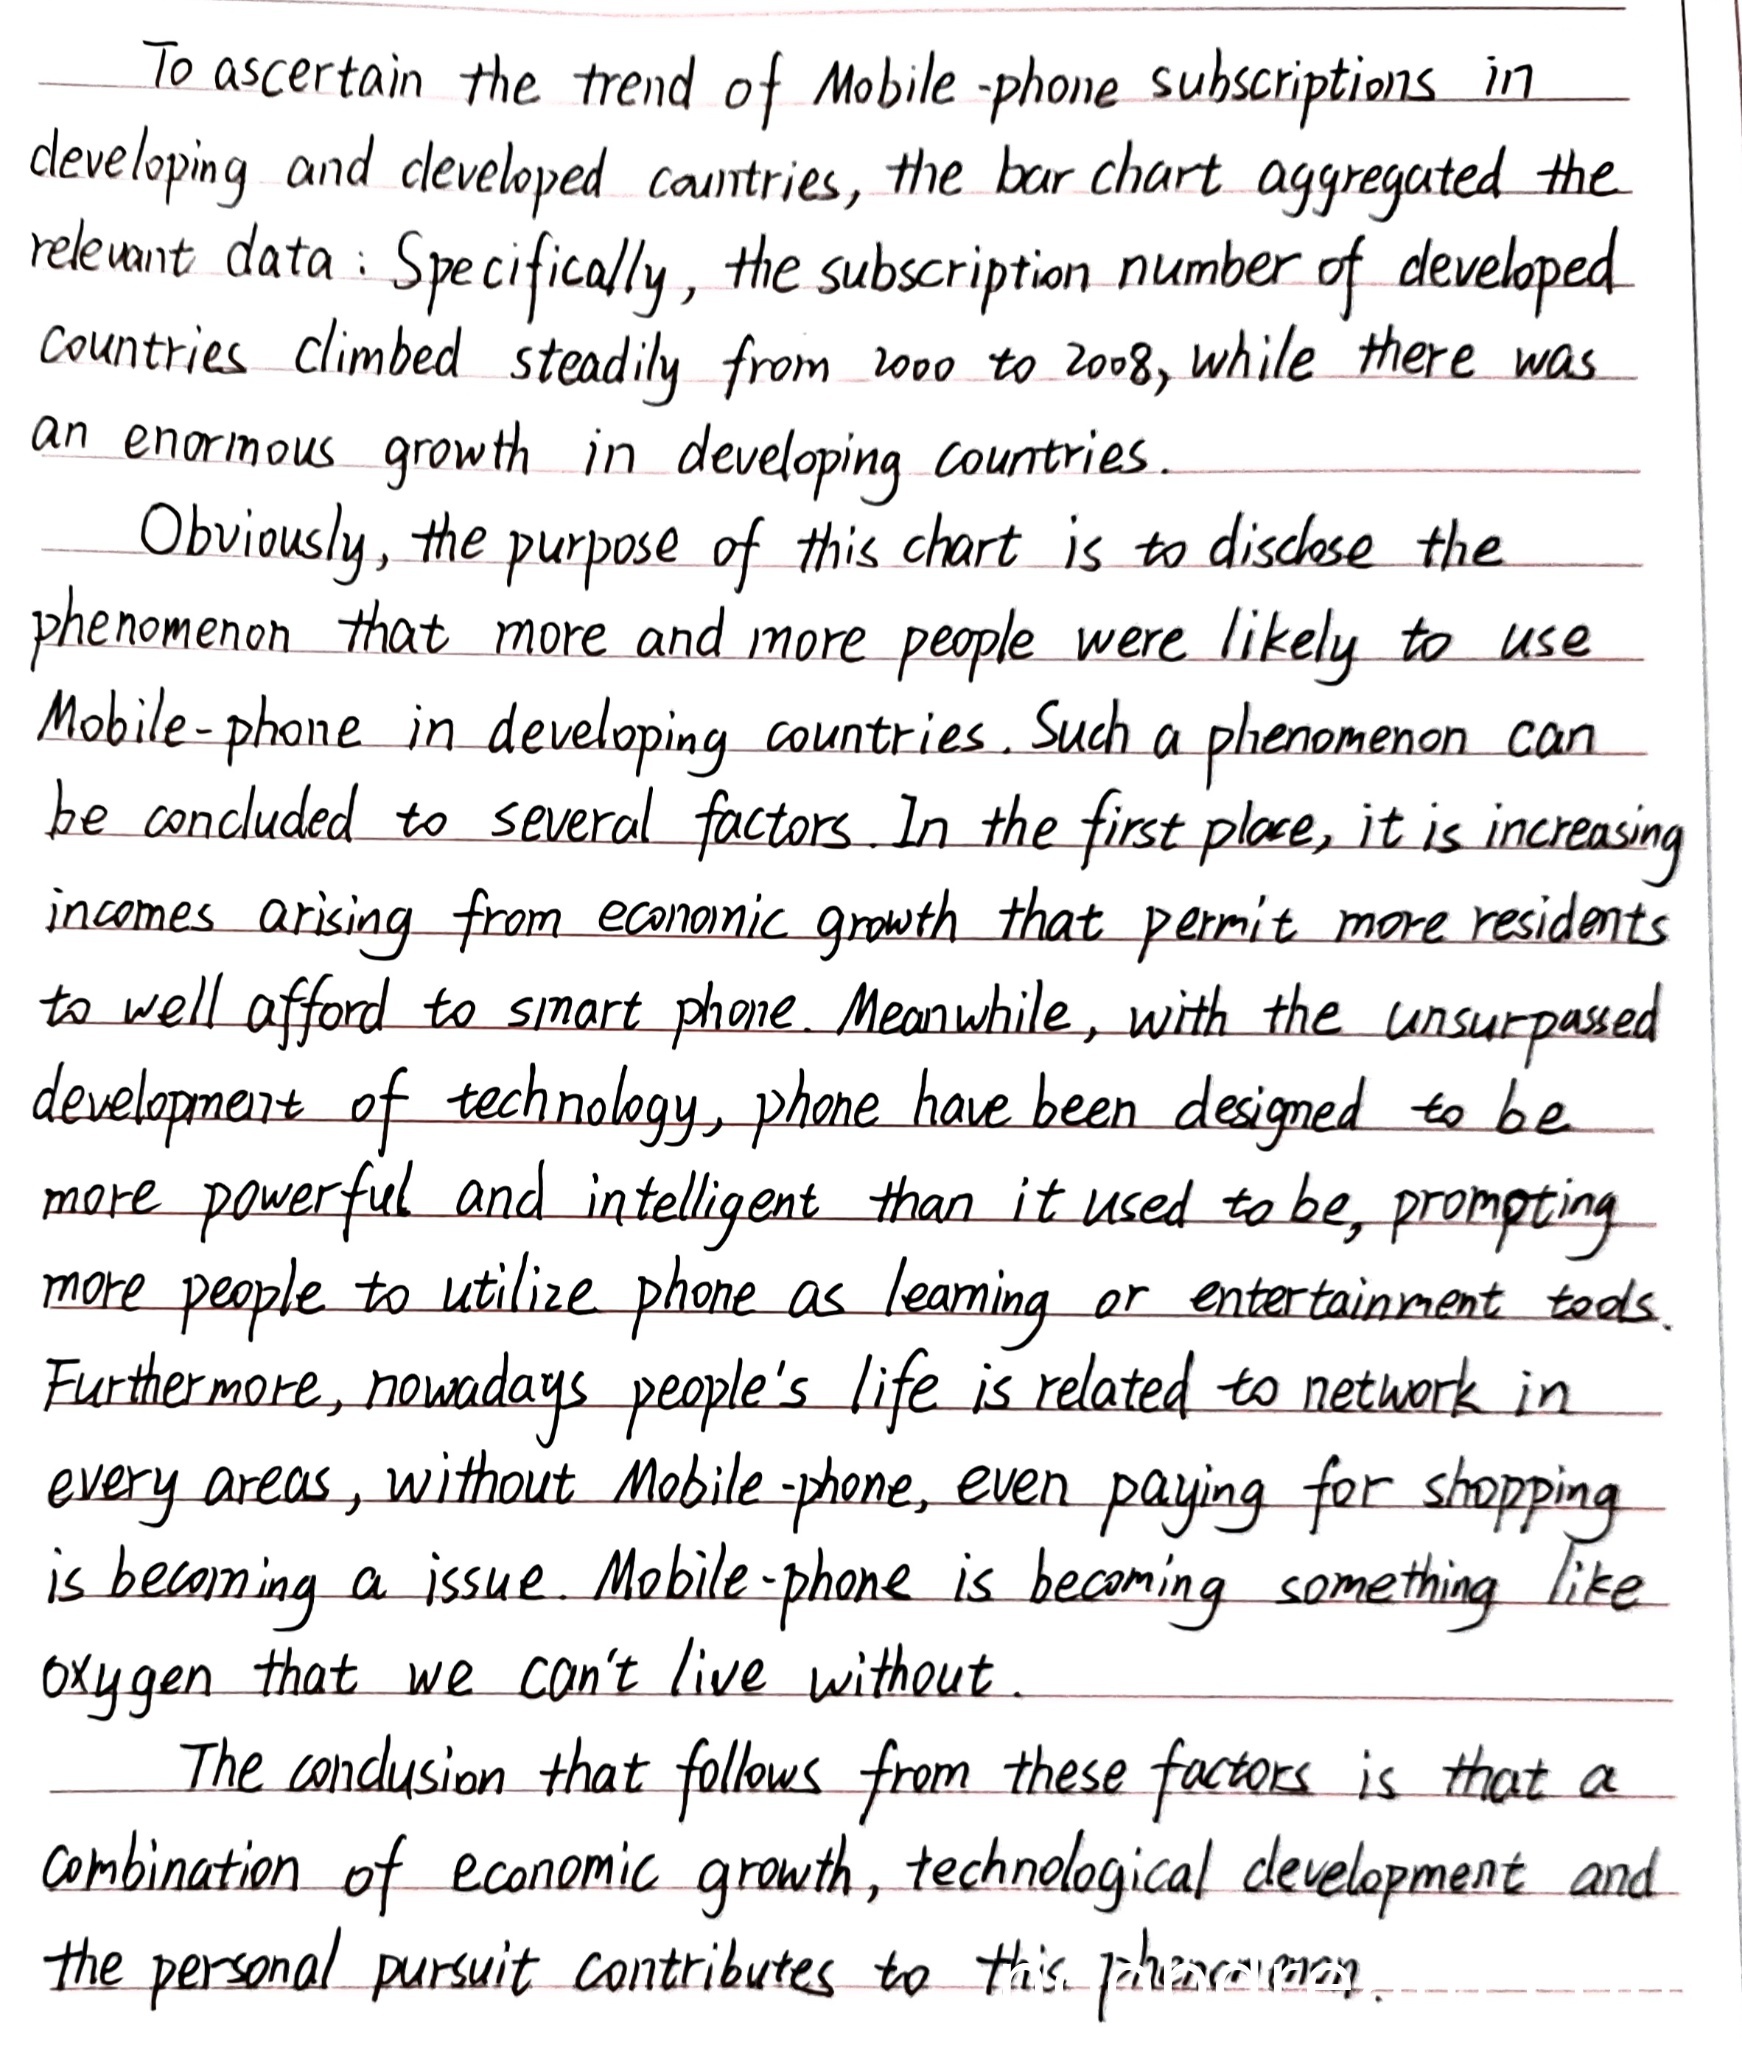 To ascertain the trend of Mobile-phone subscriptions in
developing and developed countries, the bar chart aggregated the
relevant data: Specifically, the subscription number of developed
countries climbed steadily from 2000 to 2008, while there was
an enormous growth in developing countries.
Obviously, the purpose of this chart is to disclose the
phenomenon that more and more people were likely to use
Mobile-phone in developing countries. Such a phenomenon can
be concluded to several factors. In the first place, it is increasing
incomes arising from economic growth that permit more residents
to well afford to smart phone. Meanwhile, with the unsurpassed
development of technology, phone have been designed to be
more powerful and intelligent than it used to be, prompting
more people to utilize phone as learning or entertainment tools.
Furthermore, nowadays people's life is related to network in
every areas, without Mobile-phone, even paying for shopping
is becoming a issue. Mobile-phone is becoming something like
oxygen that we can't live without.
The conclusion that follows from these factors is that a
combination of economic growth, technological development and
the personal pursuit contributes to this phenomenon.